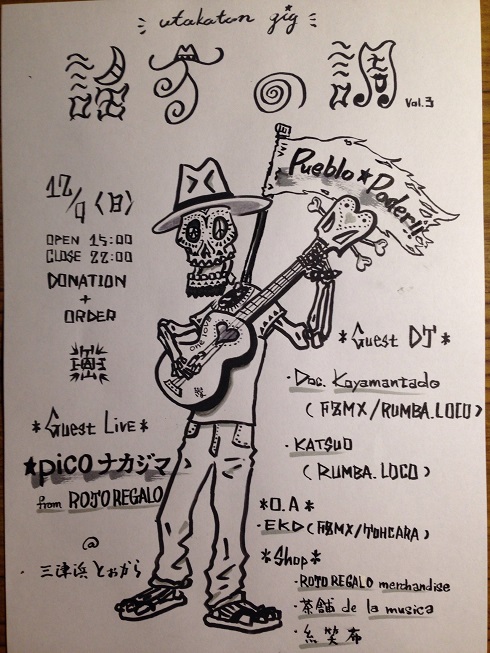 utakatan gig
謡幻の調 vol.3
12/9〈日〉
OPEN 15:00
CLOSE 22:00
DONATION
+
ORDER
Pueblo★Poder!!
one love
*Guest Live*
★pico ナカジマ
from ROJO REGALO
@
三津浜 とおがら
*Guest DJ*
・Doc. Koyamantado
(FBMX/RUMBA.LOCO)
・KATSUO
(RUMBA.LOCO)
*O.A*
・EKD(FBMX/TOHCARA)
*Shop*
・ROJO REGALO merchandise
・茶舗 de la musica
・糸笑布